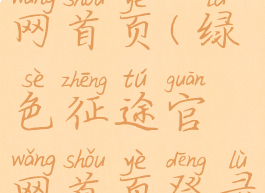 wǎng shǒu yè lǜ
网首页(绿
sè zhēng tú guān
色征途官
wǎng shǒu yè dēng lù
网首页登录